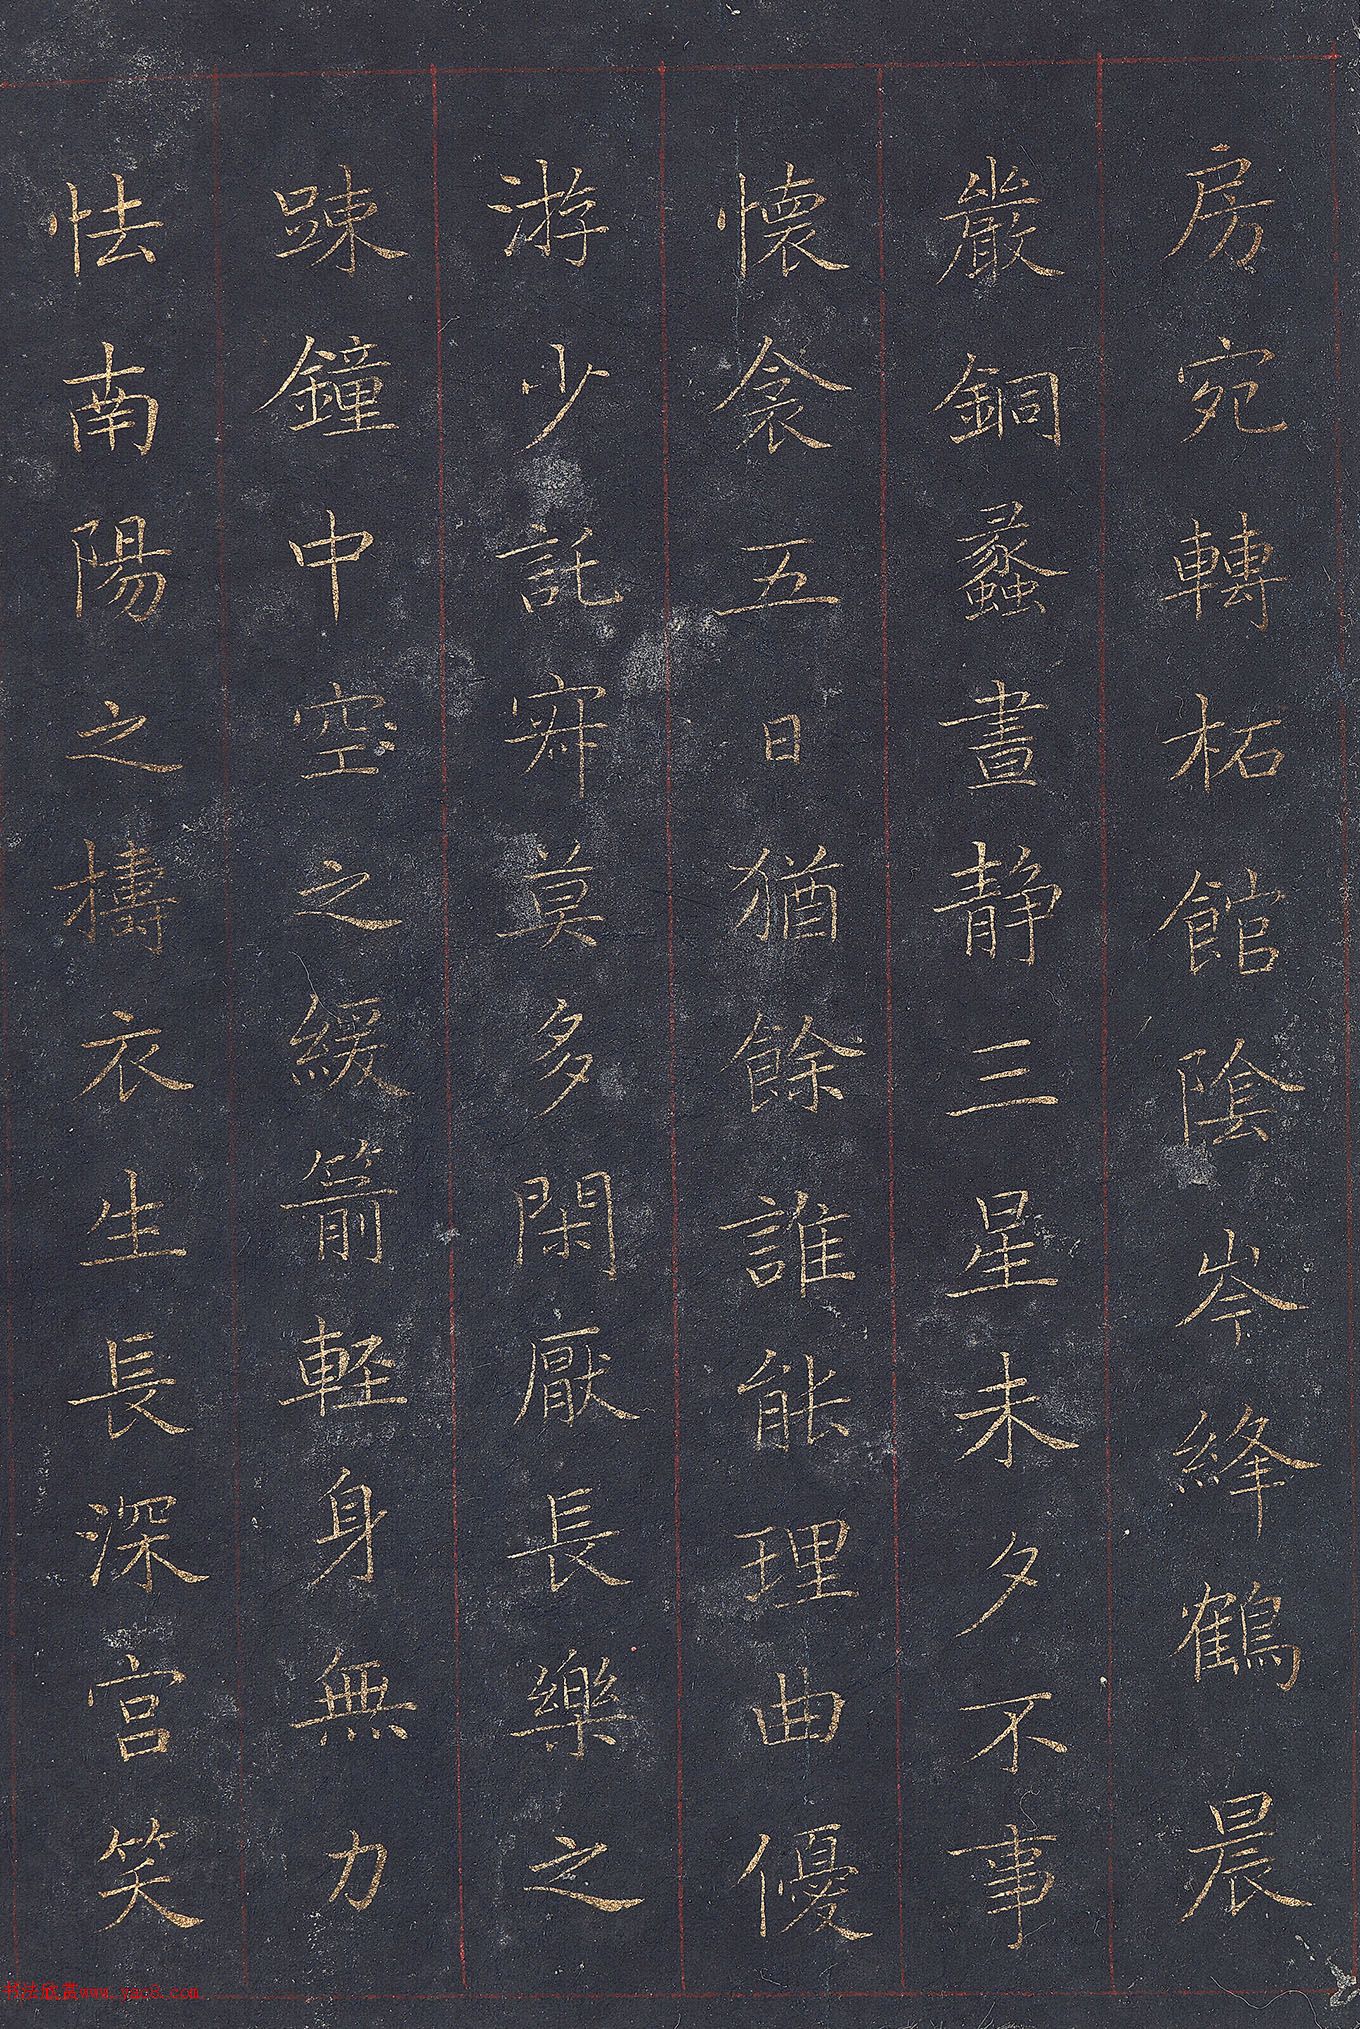 房宛轉柘館陰岑絳鶴晨
嚴銅蠡晝静三星未夕不事
懷衾五日猶餘誰能理曲優
游少託寂莫多閑厭長樂之
踈鐘中空之緩箭軽身無力
怯南陽之擣衣生長深宫笑
书法欣赏www.yac8.com